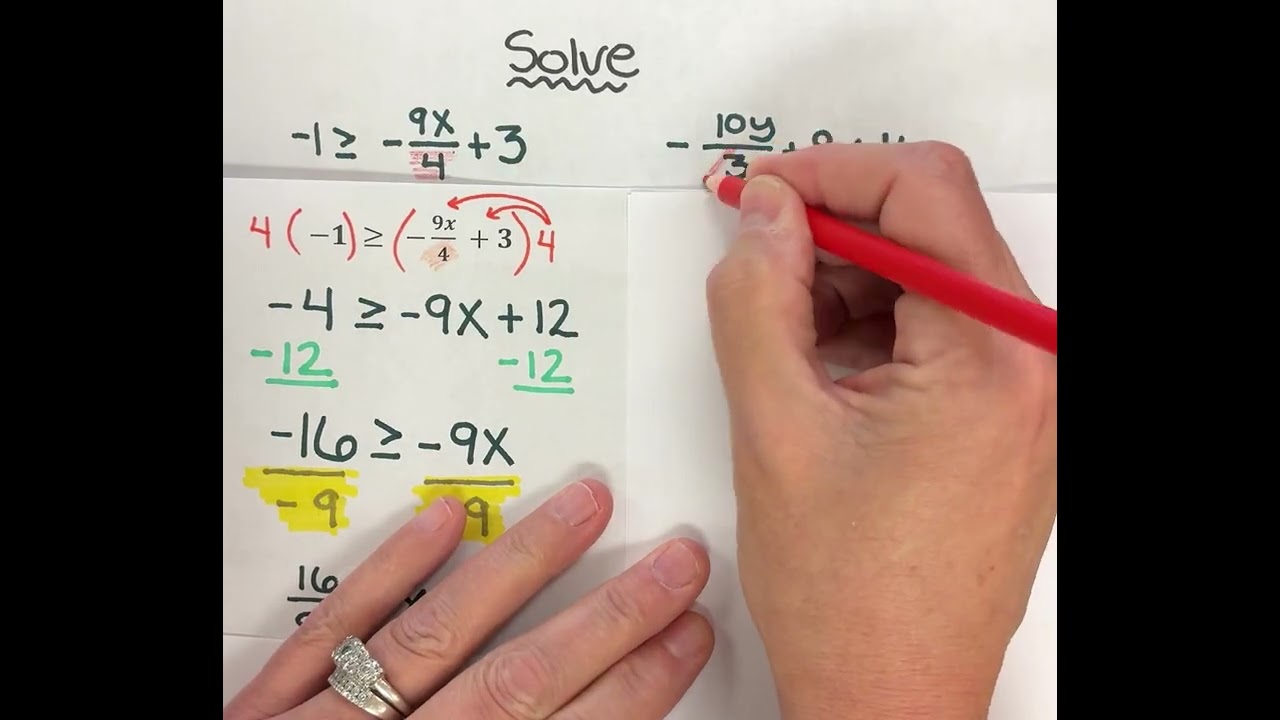 Solve
-1 ≥ -9x/4 + 3
-10y/3
4(-1) ≥ (-9x/4 + 3)4
-4 ≥ -9x + 12
-12 -12
-16 ≥ -9x
-9 9
16